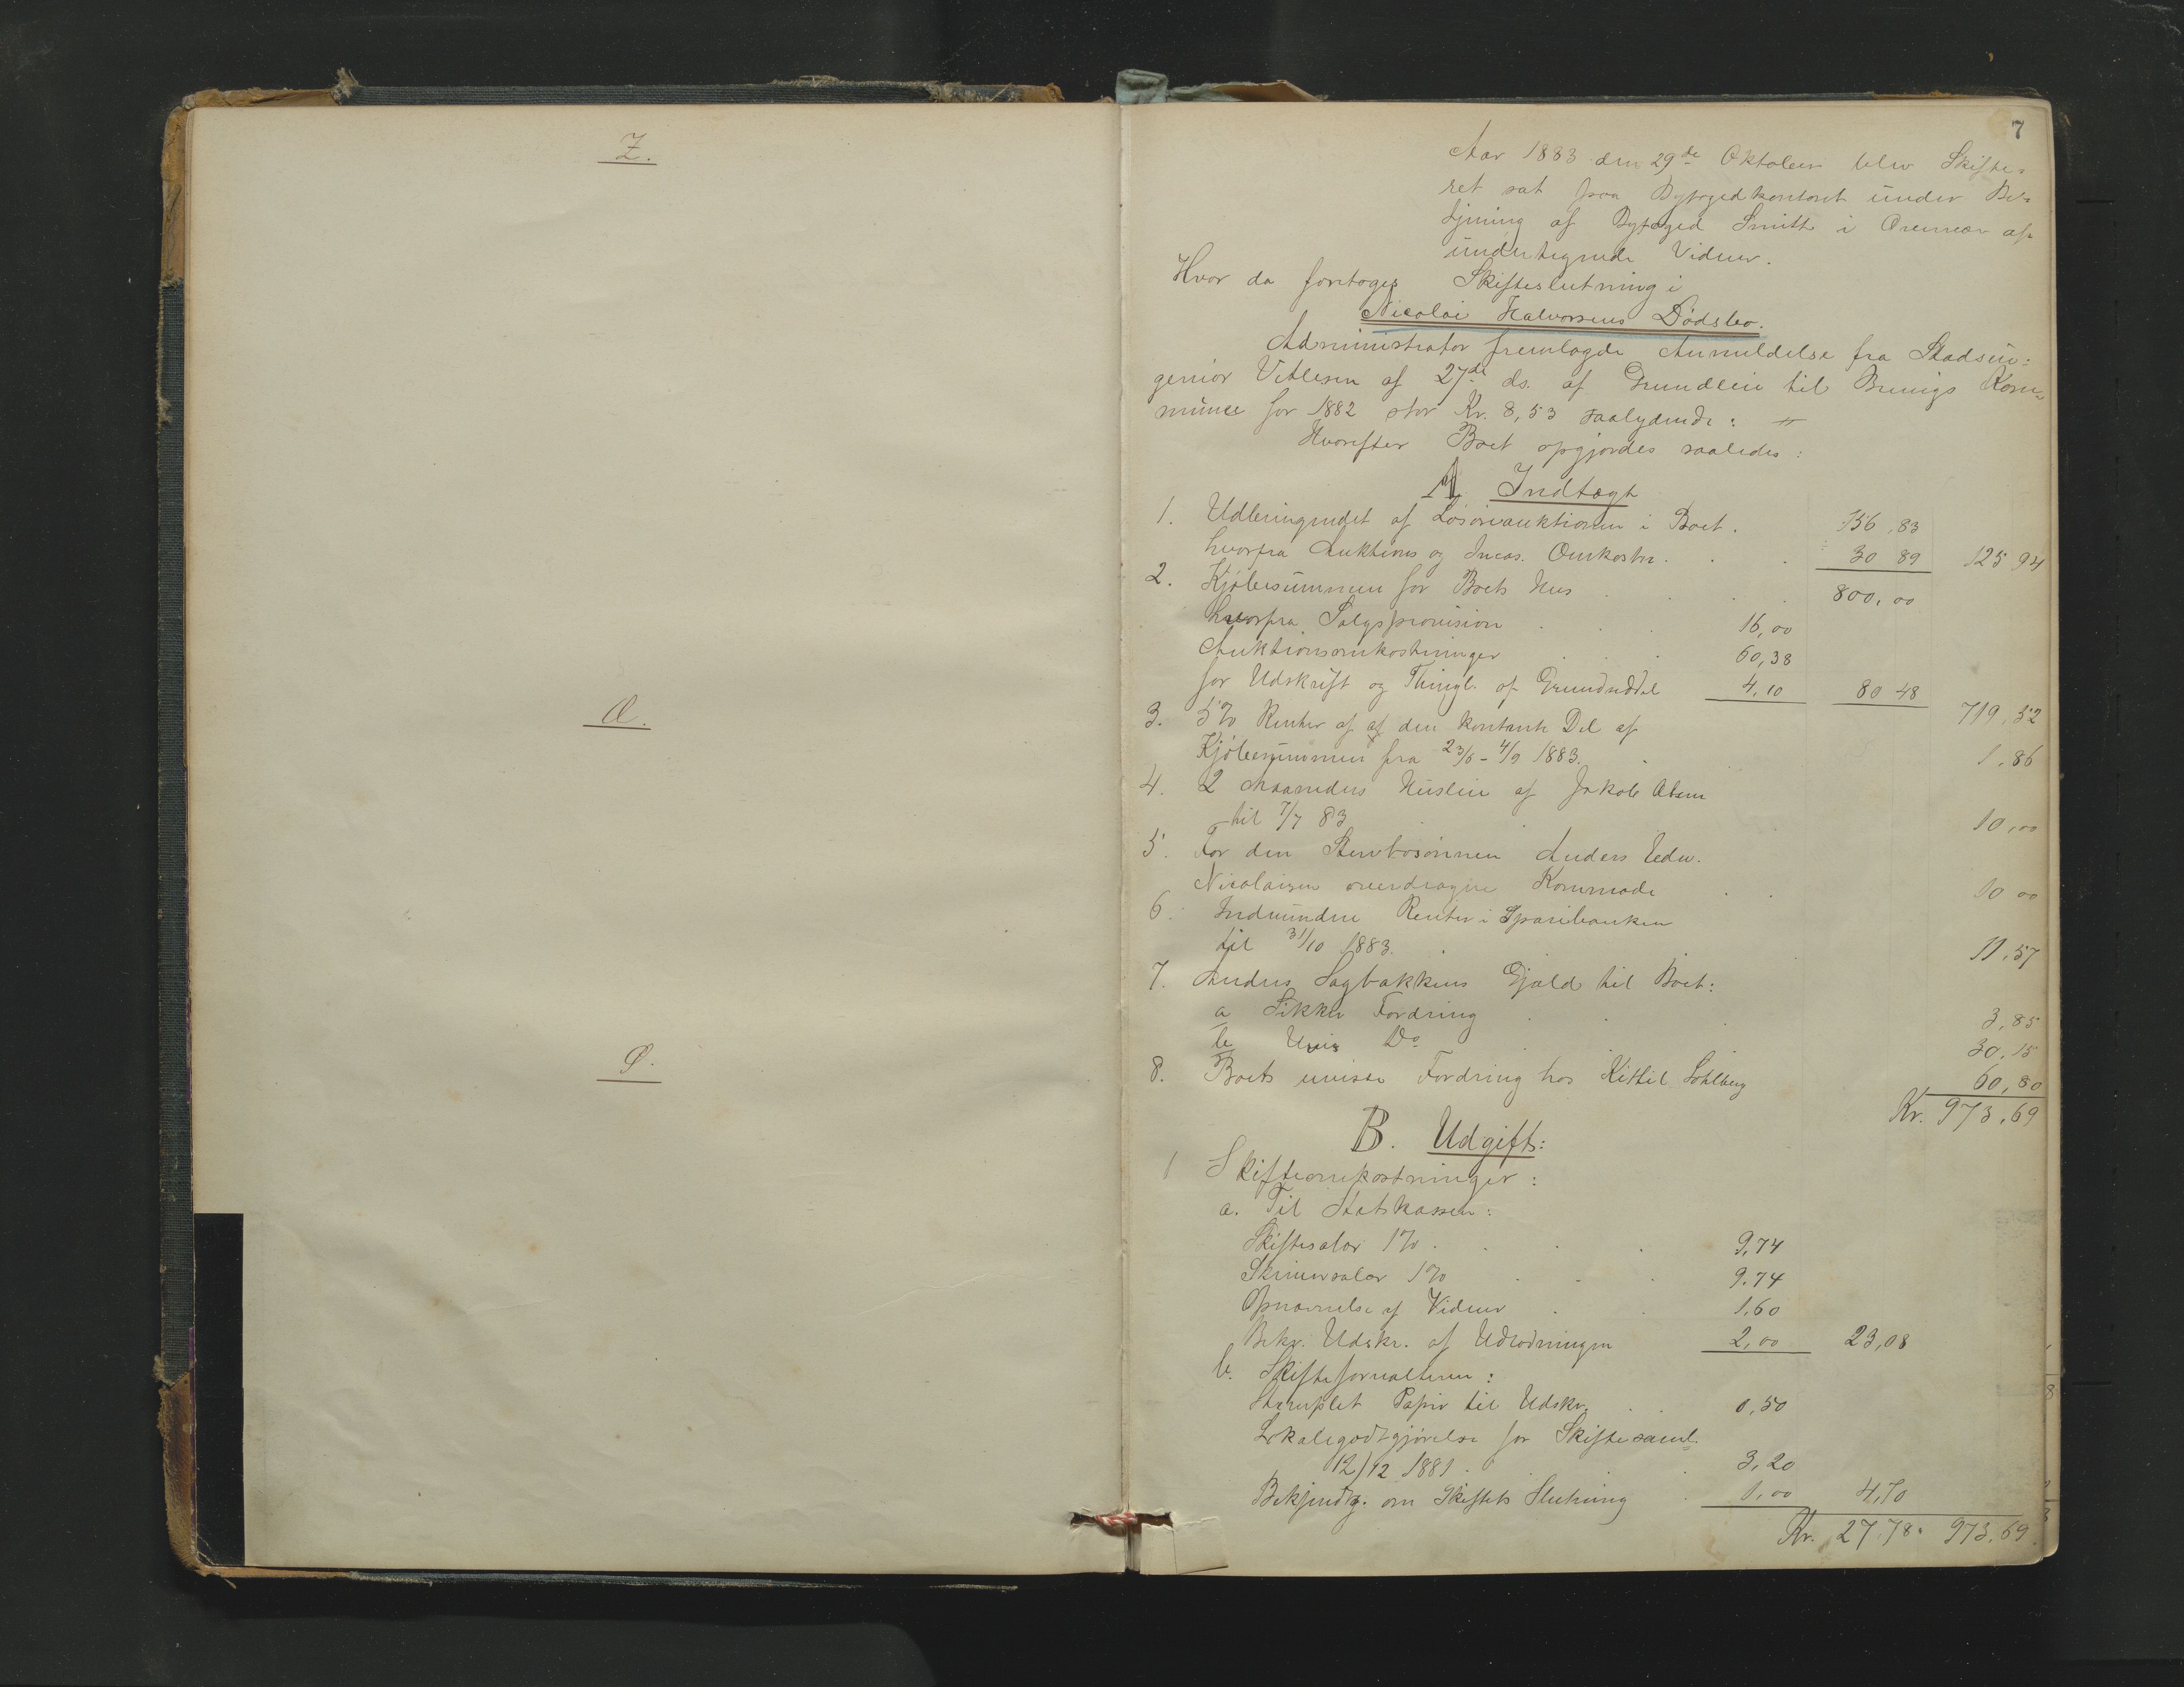 Z.
Æ.
Ø.
7
Aar 1883 den 29de Oktober blev Skifte=
ret sat paa Byfogedkontoret under Be=
tjening af Byfoged Smith i Overvær af
undertegnede Vidner.
Hvor da foretoges Skifteslutning i
Nicolai Halvorsens Dødsbo.
Administrator fremlagde Anmeldelse fra Stadsin=
geniør Vetlesen af 27de ds. af Grundleie til Brevigs Kom=
mune for 1882 stor Kr. 8,53 saalydende: #
Hvorefter Boet opgjordes saaledes:
A Indtægt
1. Udbringendet af Løsøreauktionen i Boet. 156,83
hvorfra Auktions og Incas. Omkostn. . . 30 89 125 94
2. Kjøbesummen for Boets Hus . . . 800,00
hvorfra Salgsprovision . . . 16,00
Auktionsomkostninger . . . 60,38
for Udskrift og Thingl. af Grundseddel 4,10 80 48 719,52
3. 5% Renter af af den kontante Del af
Kjøbesummen fra 23/6 - 4/9 1883. . . 1,86
4. 2 Maaneders Husleie af Jakob Absen
til 7/7 83 10,00
5. For den Stervbosønnen Anders Edv.
Nicolaisen overdragne Kommode . . 10 00
6. Indvundne Renter i Sparebanken
til 31/10 1883. . 11,57
7. Anders Sagbakkens Gjæld til Boet:
a Sikker Fordring . . . 3,85
b Uvis Do . . 30,15
8. Boets uvisse Fordring hos Kittil Sohlberg 60,80
Kr. 973,69
B. Udgift:
1 Skifteomkostninger:
a. Til Statskassen:
Skiftesalær 1% . . . . 9,74
Skriversalær 1% . . . 9.74
Opnævnelse af Vidner . . 1,60
Bekr. Udskr. af Udlodningen 2,00 23,08
b. Skifteforvalteren:
Stemplet Papir til Udskr. . . 0,50
Lokalegodtgjørelse for Skiftesaml.
12/12 1881 . . . 3,20
Bekjendtg. om Skiftets Slutning . 1,00 4,70
Kr. 27,78. 973,69.